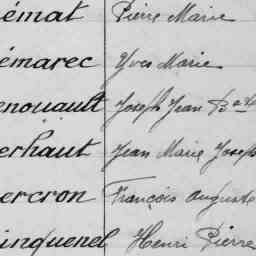 émat Pierre Marie
émarec Yves Marie
enouault Joseph Jean Bte
erhaut Jean Marie Joseph
ercron François Auguste
inquenel Henri Pierre